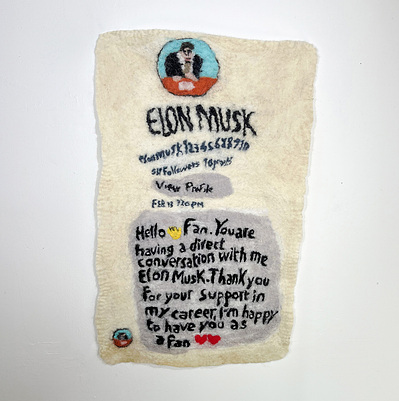 ELON MUSK
elonmusk12345678910
View Profile
Hello Fan. You are
having a direct
conversation with me
Elon Musk. Thank you
for your support in
my career, I'm happy
to have you as
a fan